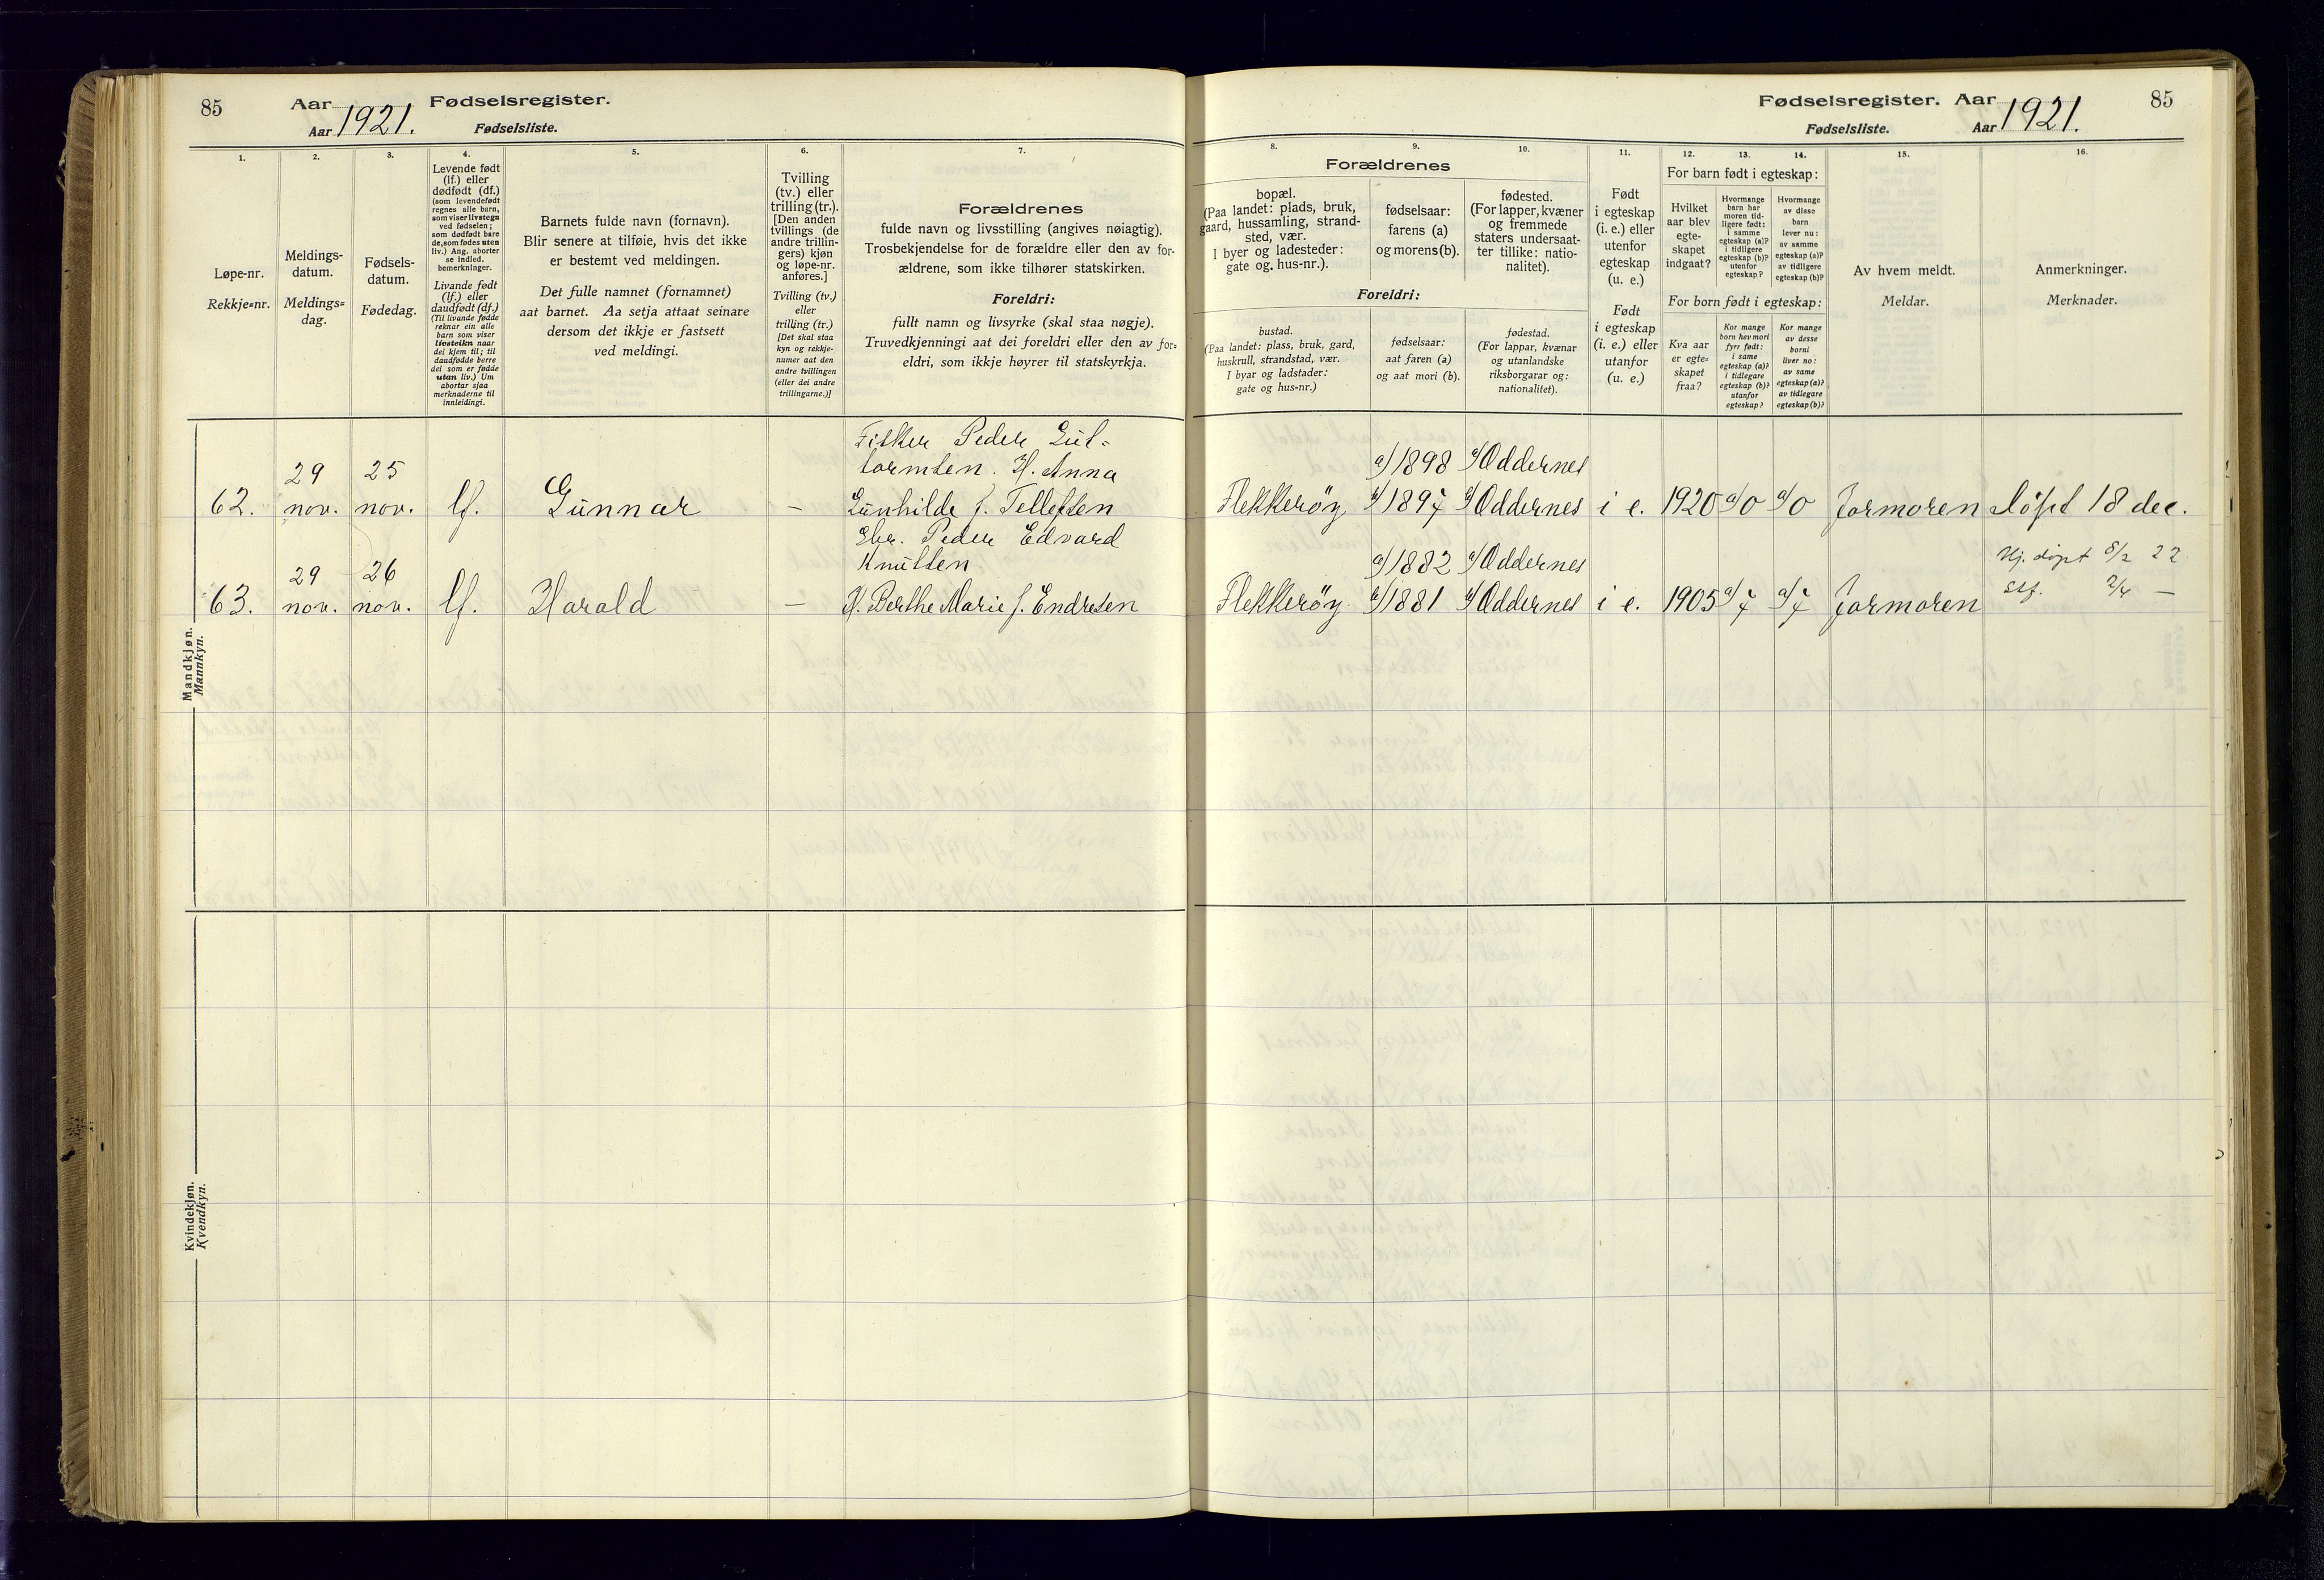 85 Aar 1921. Fødselsregister.
Aar Fødselsliste.
1.
Løpe-nr.
Rekkje=nr.
2.
Meldings-
datum.
Meldings=
dag.
3.
Fødsels-
datum.
Fødedag.
4.
Levende født
(lf.) eller
dødfødt (df.)
(som levendefødt
regnes alle barn,
som viser livstegn
ved fødselen;
som dødfødt bare
de, som fødes uten
liv.) Ang. aborter
se indled.
bemerkninger.
Livande født
(lf.) eller
daudfødt (df.)
(Til livande fødde
reknar ein alle
barn som viser
livsteikn naar
dei kjem til; til
daudfødde berre
dei som er fødde
utan liv.) Um
abortar sjaa
merknaderne til
innleidingi.
5.
Barnets fulde navn (fornavn).
Blir senere at tilføie, hvis det ikke
er bestemt ved meldingen.
Det fulle namnet (fornamnet)
aat barnet. Aa setja attaat seinare
dersom det ikkje er fastsett
ved meldingi.
6.
Tvilling
(tv.) eller
trilling (tr.).
[Den anden
tvillings (de
andre trillin-
gers) kjøn
og løpe-nr.
anføres.]
Tvilling (tv.)
eller
trilling (tr.)
[Det skal staa
kyn og rekkje-
numer aat den
andre tvillingen
(eller dei andre
trillingarne.)]
7.
Forældrenes
fulde navn og livsstilling (angives nøiagtig).
Trosbekjendelse for de forældre eller den av for-
ældrene, som ikke tilhører statskirken.
Foreldri:
fullt namn og livsyrke (skal staa nøgje).
Truvedkjenningi aat dei foreldri eller den av for=
eldri, som ikkje høyrer til statskyrkja.
Mandkjøn.
Mannkyn.
62. 29 nov. 25 nov. lf. Gunnar –
Fisker Peder Gut-
tormsen. H. Anna
Gunhilde f. Tellefsen
63. 29 nov. 26 nov. lf. Harald –
Gbr. Peder Edvard
Knutsen
H. Berthe Marie f. Endresen
Kvindekjøn.
Kvendkyn.
Fødselsregister. Aar 1921. 85
Fødselsliste. Aar
8.
9.
10.
Forældrenes
bopæl.
(Paa landet: plads, bruk,
gaard, hussamling, strand-
sted, vær.
I byer og ladesteder:
gate og. hus-nr.).
fødselsaar:
farens (a)
og morens (b).
fødested.
(For lapper, kvæner
og fremmede
staters undersaat-
ter tillike: natio-
nalitet).
Foreldri:
bustad.
(Paa landet: plass, bruk, gard,
huskrull, strandstad, vær.
I byar og ladstader:
gate og hus=nr.)
fødselsaar:
aat faren (a)
og aat mori (b).
fødestad.
(For lappar, kvænar
og utanlandske
riksborgarar og:
nationalitet).
11.
Født
i egteskap
(i. e.) eller
utenfor
egteskap
(u. e.)
Født
i egteskap
(i. e.) eller
utanfor
(u. e.)
12.
13.
14.
For barn født i egteskap:
Hvilket
aar blev
egte-
skapet
indgaat?
Hvormange
barn har
moren tid-
ligere født:
i samme
egteskap (a)?
i tidligere
egteskap (b)?
utenfor
egteskap?
Hvormange
av disse
barn
lever nu:
av samme
egteskap (a)?
av tidligere
egteskap (b)?
For born født i egteskap:
Kva aar
er egte=
skapet
fraa?
Kor mange
born hev mori
fyrr født:
i same
egteskap (a)?
i tidlegare
egteskap (b)?
utanfor
egteskap?
Kor mange
av desse
borni
liver no:
av same
egteskap (a)?
av tidlegare
egteskap (b)?
15.
Av hvem meldt.
Meldar.
16.
Anmerkninger.
Merknader.
a) 1898 a) Oddernes
Flekkerøy b) 1897 b) Oddernes i e. 1920 a) 0 a) 0 Jormoren Døpt 18 dec.
a) 1882 a) Oddernes Hj. døpt 8/2 22
Flekkerøy b) 1881 b) Oddernes i e. 1905 a) 7 a) 7 Jormoren Stf. 2/4 –